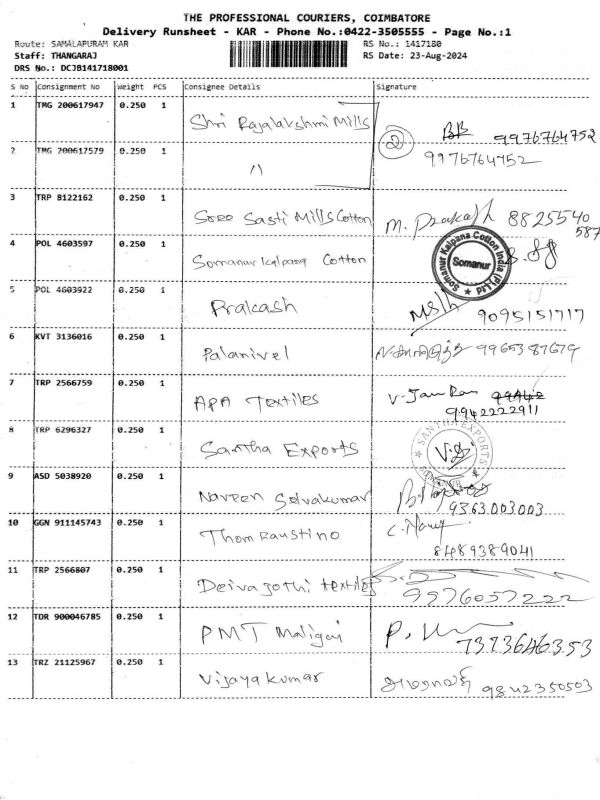 THE PROFESSIONAL COURIERS, COIMBATORE
Delivery Runsheet - KAR - Phone No.:0422-3505555 - Page No.:1
Route: SAMALAPURAM KAR RS No.: 1417180
Staff: THANGARAJ RS Date: 23-Aug-2024
DRS No.: DCJB141718001
S No Consignment No Weight PCS Consignee Details Signature
1 TMG 200617947 0.250 1 Shri Rajalakshmi Mills 2 BB 9976764752
2 TMG 200617579 0.250 1 〃 9976764752
3 TRP 8122162 0.250 1 Sree Sasti Mills Cotton M. Prakash 8825540
587
4 POL 4603597 0.250 1 Somanur Kalpana Cotton
Somanur Kalpana Cotton India (P) Ltd
Somanur
5 POL 4603922 0.250 1 Prakash 9095151717
6 KVT 3136016 0.250 1 Palanivel 9965387679
7 TRP 2566759 0.250 1 APA Textiles 99942
9942222911
8 TRP 6296327 0.250 1 Santha Exports
SANTHA EXPORTS
9 ASD 5038920 0.250 1 Naveen Selvakumar
9363003003
10 GGN 911145743 0.250 1 Thom Faustino
8489389041
11 TRP 2566807 0.250 1 Deivajothi textiles
9976057222
12 TDR 900046785 0.250 1 PMT Maligai
7373646353
13 TRZ 21125967 0.250 1 Vijayakumar 9842350503